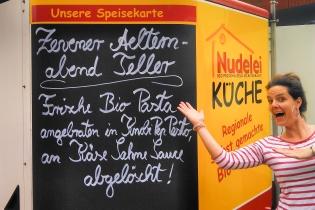 Unsere Speisekarte
Zevener Aeltern-
abend Teller
Frische Bio Pasta
angebraten in
an Käse Sahne Sauce
abgelöscht!
Nudelei
KÜCHE
Regionale
gemachte
Bio